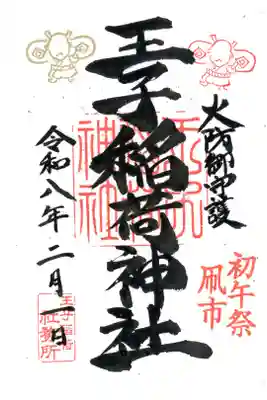 火防御守護
初午祭
凧市
王子稲荷神社
令和八年二月一日
王子稲荷
社務所